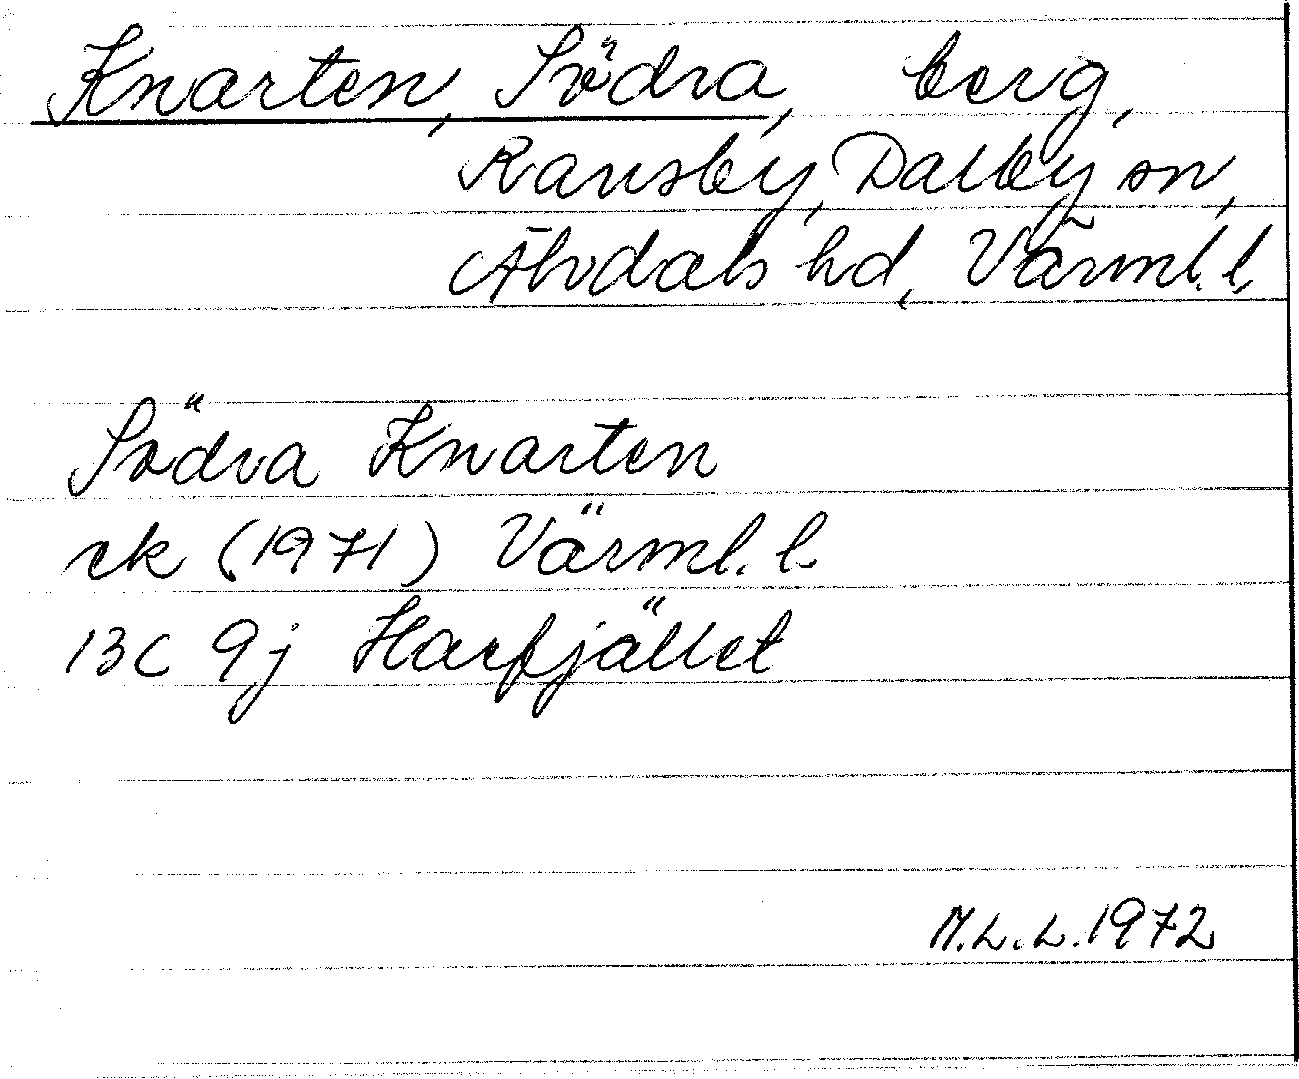 Knarten, Södra, berg,
Ransby, Dalby sn,
Älvdals hd, Värml. l.
Södra Knarten
ek (1971) Värml. l.
13C 9j Harfjället
M.L.L. 1972